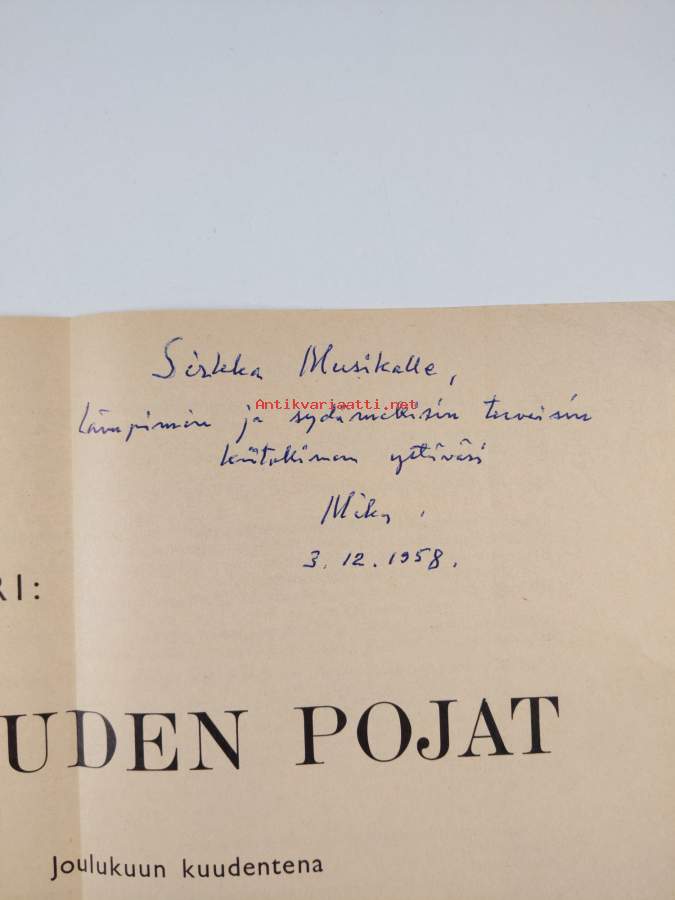 Sirkka Musikalle,
Antikvariaatti.net
Lämpimin ja sydämellisin terveisin
kiitollinen ystäväsi
Mika.
3.12.1958.
RI:
UDEN POJAT
Joulukuun kuudentena